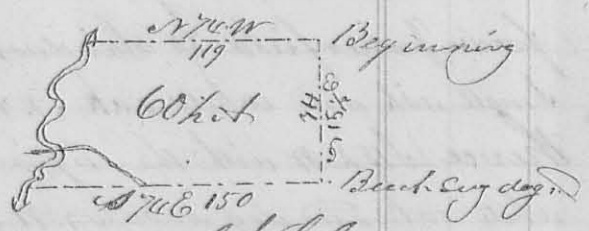 N 74 W
119
Beginning
60 h A
74
S 15½ E
S 74 E 150
Beech Sug dog.